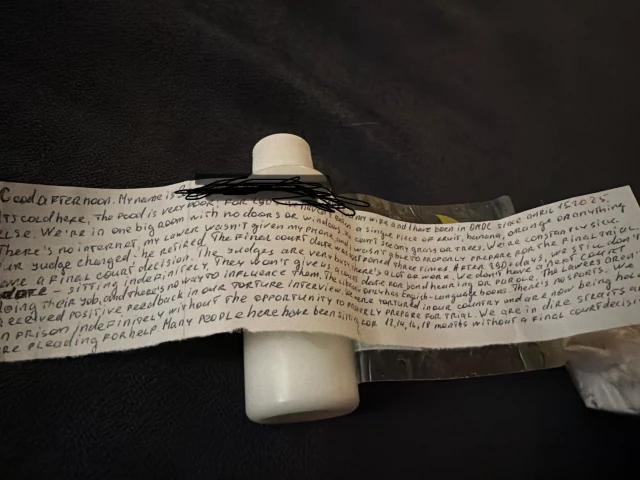 Good afternoon. My name is my wife and have been in OMDC since april 15 2025.
It's cold here, the food is very poor. For 290 a single piece of fruit, banana, orange or anything
else. We're in one big room with no doors or windows. can't see any grass or trees. We're constantly sick.
There's no internet, my lawer wasn't given my phone, and wasn't able to properly prepare for the final trial.
Our judge changed. he retired. The final court date was postponed three times. After 290 days, we still don't
have a final court decision. The judges are very busy. There's a lot of work. We don't have a next court
date - sitting indefinitely. They don't give a date for bond hearing or parole. The lawers aren't
doing their job, and there's no way to influence them. The library only has English-language books. There's no sports. We
received positive feedback in our torture interview. We were tortured in our country and are now being
in prison indefinitely without the opportunity to properly prepare for trial. We are in dire straits and
are pleading for help. Many people here have been sitting for 12, 14, 16, 18 months without a final court decision